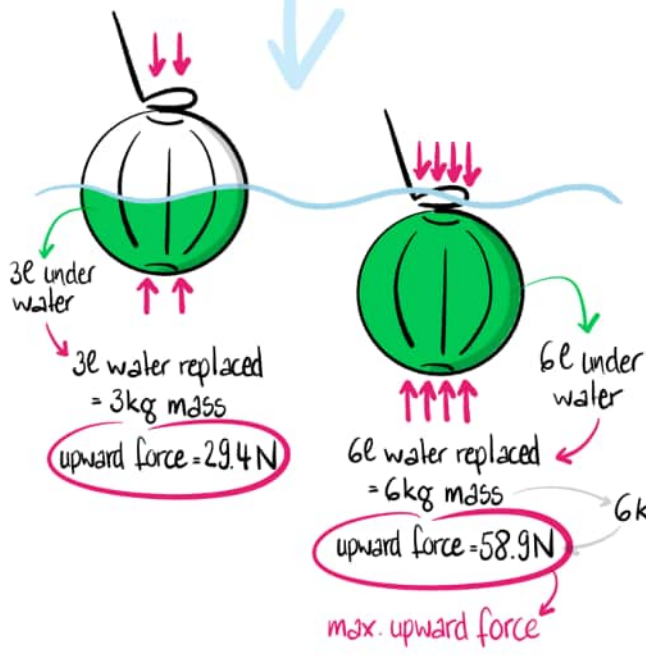 3ℓ under
water
3ℓ water replaced
= 3kg mass
upward force = 29.4 N
6ℓ under
water
6ℓ water replaced
= 6kg mass
6k
upward force = 58.9N
max. upward force